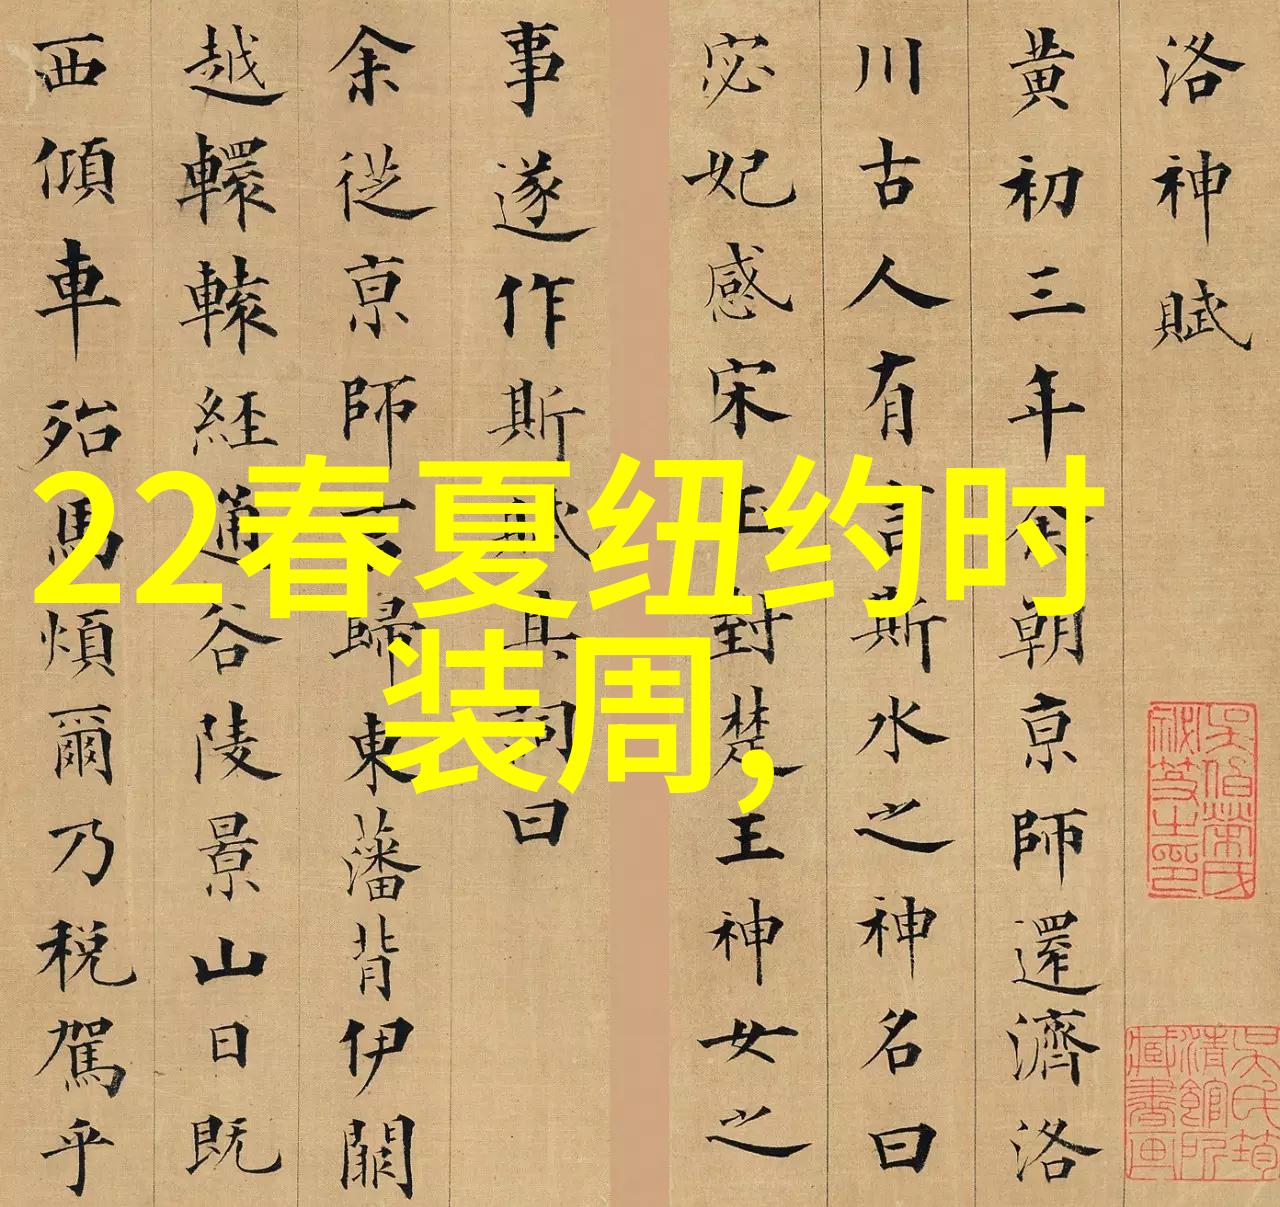 洛神賦
黄初三年余朝京師還濟洛
川古人有言斯水之神名曰
宓妃感宋玉對楚王神女之
事遂作斯賦其詞曰
余從京師言歸東藩背伊闕
越轘轅經通谷陵景山日既
西傾車殆馬煩爾乃稅駕乎
22春夏纽约时
装周,